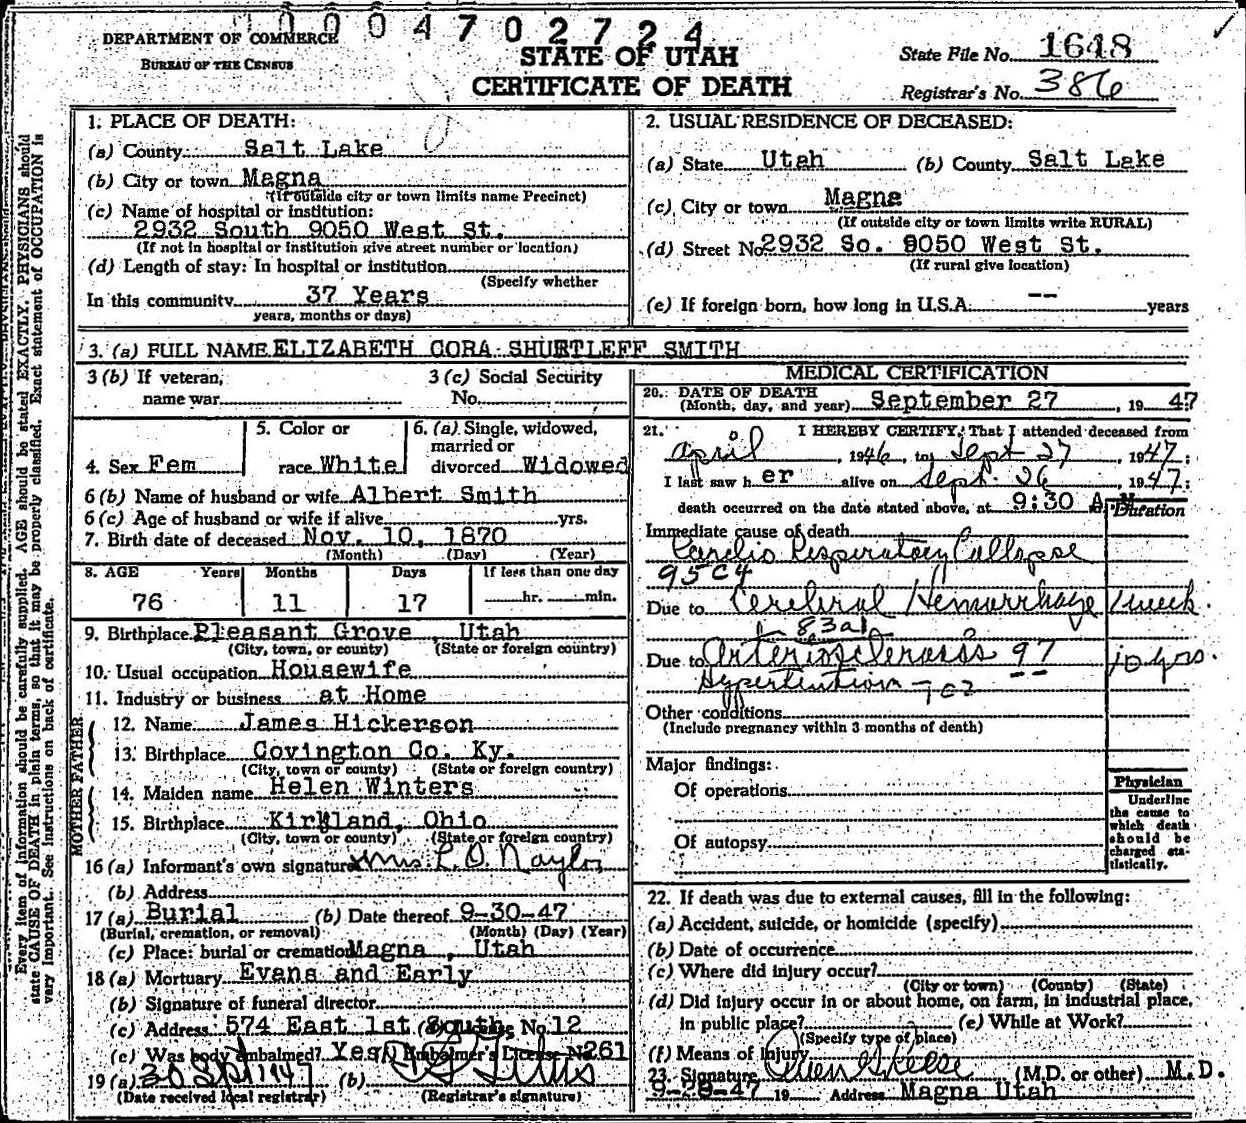 0004702724
DEPARTMENT OF COMMERCE
BUREAU OF THE CENSUS
STATE OF UTAH
CERTIFICATE OF DEATH
State File No. 1618
Registrar's No. 386
Every item of information should be carefully supplied. AGE should be stated EXACTLY. PHYSICIANS should
state CAUSE OF DEATH in plain terms, so that it may be properly classified. Exact statement of OCCUPATION is
very important. See instructions on back of certificate.
1. PLACE OF DEATH:
(a) County Salt Lake
(b) City or town Magna
(If outside city or town limits name Precinct)
(c) Name of hospital or institution:
2932 South 9050 West St.
(If not in hospital or institution give street number or location)
(d) Length of stay: In hospital or institution
(Specify whether
In this community 37 Years
years, months or days)
2. USUAL RESIDENCE OF DECEASED:
(a) State Utah (b) County Salt Lake
(c) City or town Magna
(If outside city or town limits write RURAL)
(d) Street No. 2932 So. 9050 West St.
(If rural give location)
(e) If foreign born, how long in U.S.A. -- years
3. (a) FULL NAME ELIZABETH CORA SHURTLEFF SMITH
3 (b) If veteran,
name war
3 (c) Social Security
No.
4. Sex Fem
5. Color or
race White
6. (a) Single, widowed,
married or
divorced Widowed
6 (b) Name of husband or wife Albert Smith
6 (c) Age of husband or wife if alive yrs.
7. Birth date of deceased Nov. 10, 1870
(Month) (Day) (Year)
8. AGE Years Months Days If less than one day
76 11 17 hr. min.
9. Birthplace Pleasant Grove, Utah
(City, town, or county) (State or foreign country)
10. Usual occupation Housewife
11. Industry or business at Home
MOTHER FATHER
12. Name James Hickerson
13. Birthplace Covington Co. Ky.
(City, town or county) (State or foreign country)
14. Maiden name Helen Winters
15. Birthplace Kirkland, Ohio
(City, town or county) (State or foreign country)
16 (a) Informant's own signature Mrs. L. O. Naylor
(b) Address
17 (a) Burial (b) Date thereof 9-30-47
(Burial, cremation, or removal) (Month) (Day) (Year)
(c) Place: burial or cremation Magna, Utah
18 (a) Mortuary Evans and Early
(b) Signature of funeral director
(c) Address 574 East 1st South No. 12
(c) Was body embalmed? Yes Embalmer's License No. 261
19 (a) 30 Sept 1947 (b)
(Date received local registrar) (Registrar's signature)
MEDICAL CERTIFICATION
20. DATE OF DEATH
(Month, day, and year) September 27, 1947
21. I HEREBY CERTIFY, That I attended deceased from
April, 1946, to Sept 27, 1947;
I last saw her alive on Sept. 26, 1947;
death occurred on the date stated above, at 9:30 A M
Duration
Immediate cause of death
Cardio Respiratory Collapse
95c4
Due to Cerebral Hemorrhage 1 week.
83a1
Due to Arteriosclerosis 97 10 yrs.
Hypertention - 102
Other conditions
(Include pregnancy within 3 months of death)
Major findings:
Of operations
Of autopsy
Physician
Underline
the cause to
which death
should be
charged sta-
tistically.
22. If death was due to external causes, fill in the following:
(a) Accident, suicide, or homicide (specify)
(b) Date of occurrence
(c) Where did injury occur?
(City or town) (County) (State)
(d) Did injury occur in or about home, on farm, in industrial place,
in public place? (e) While at Work?
(Specify type of place)
(f) Means of Injury
23. Signature (M.D. or other) M.D.
9-28-47 19 Address Magna Utah